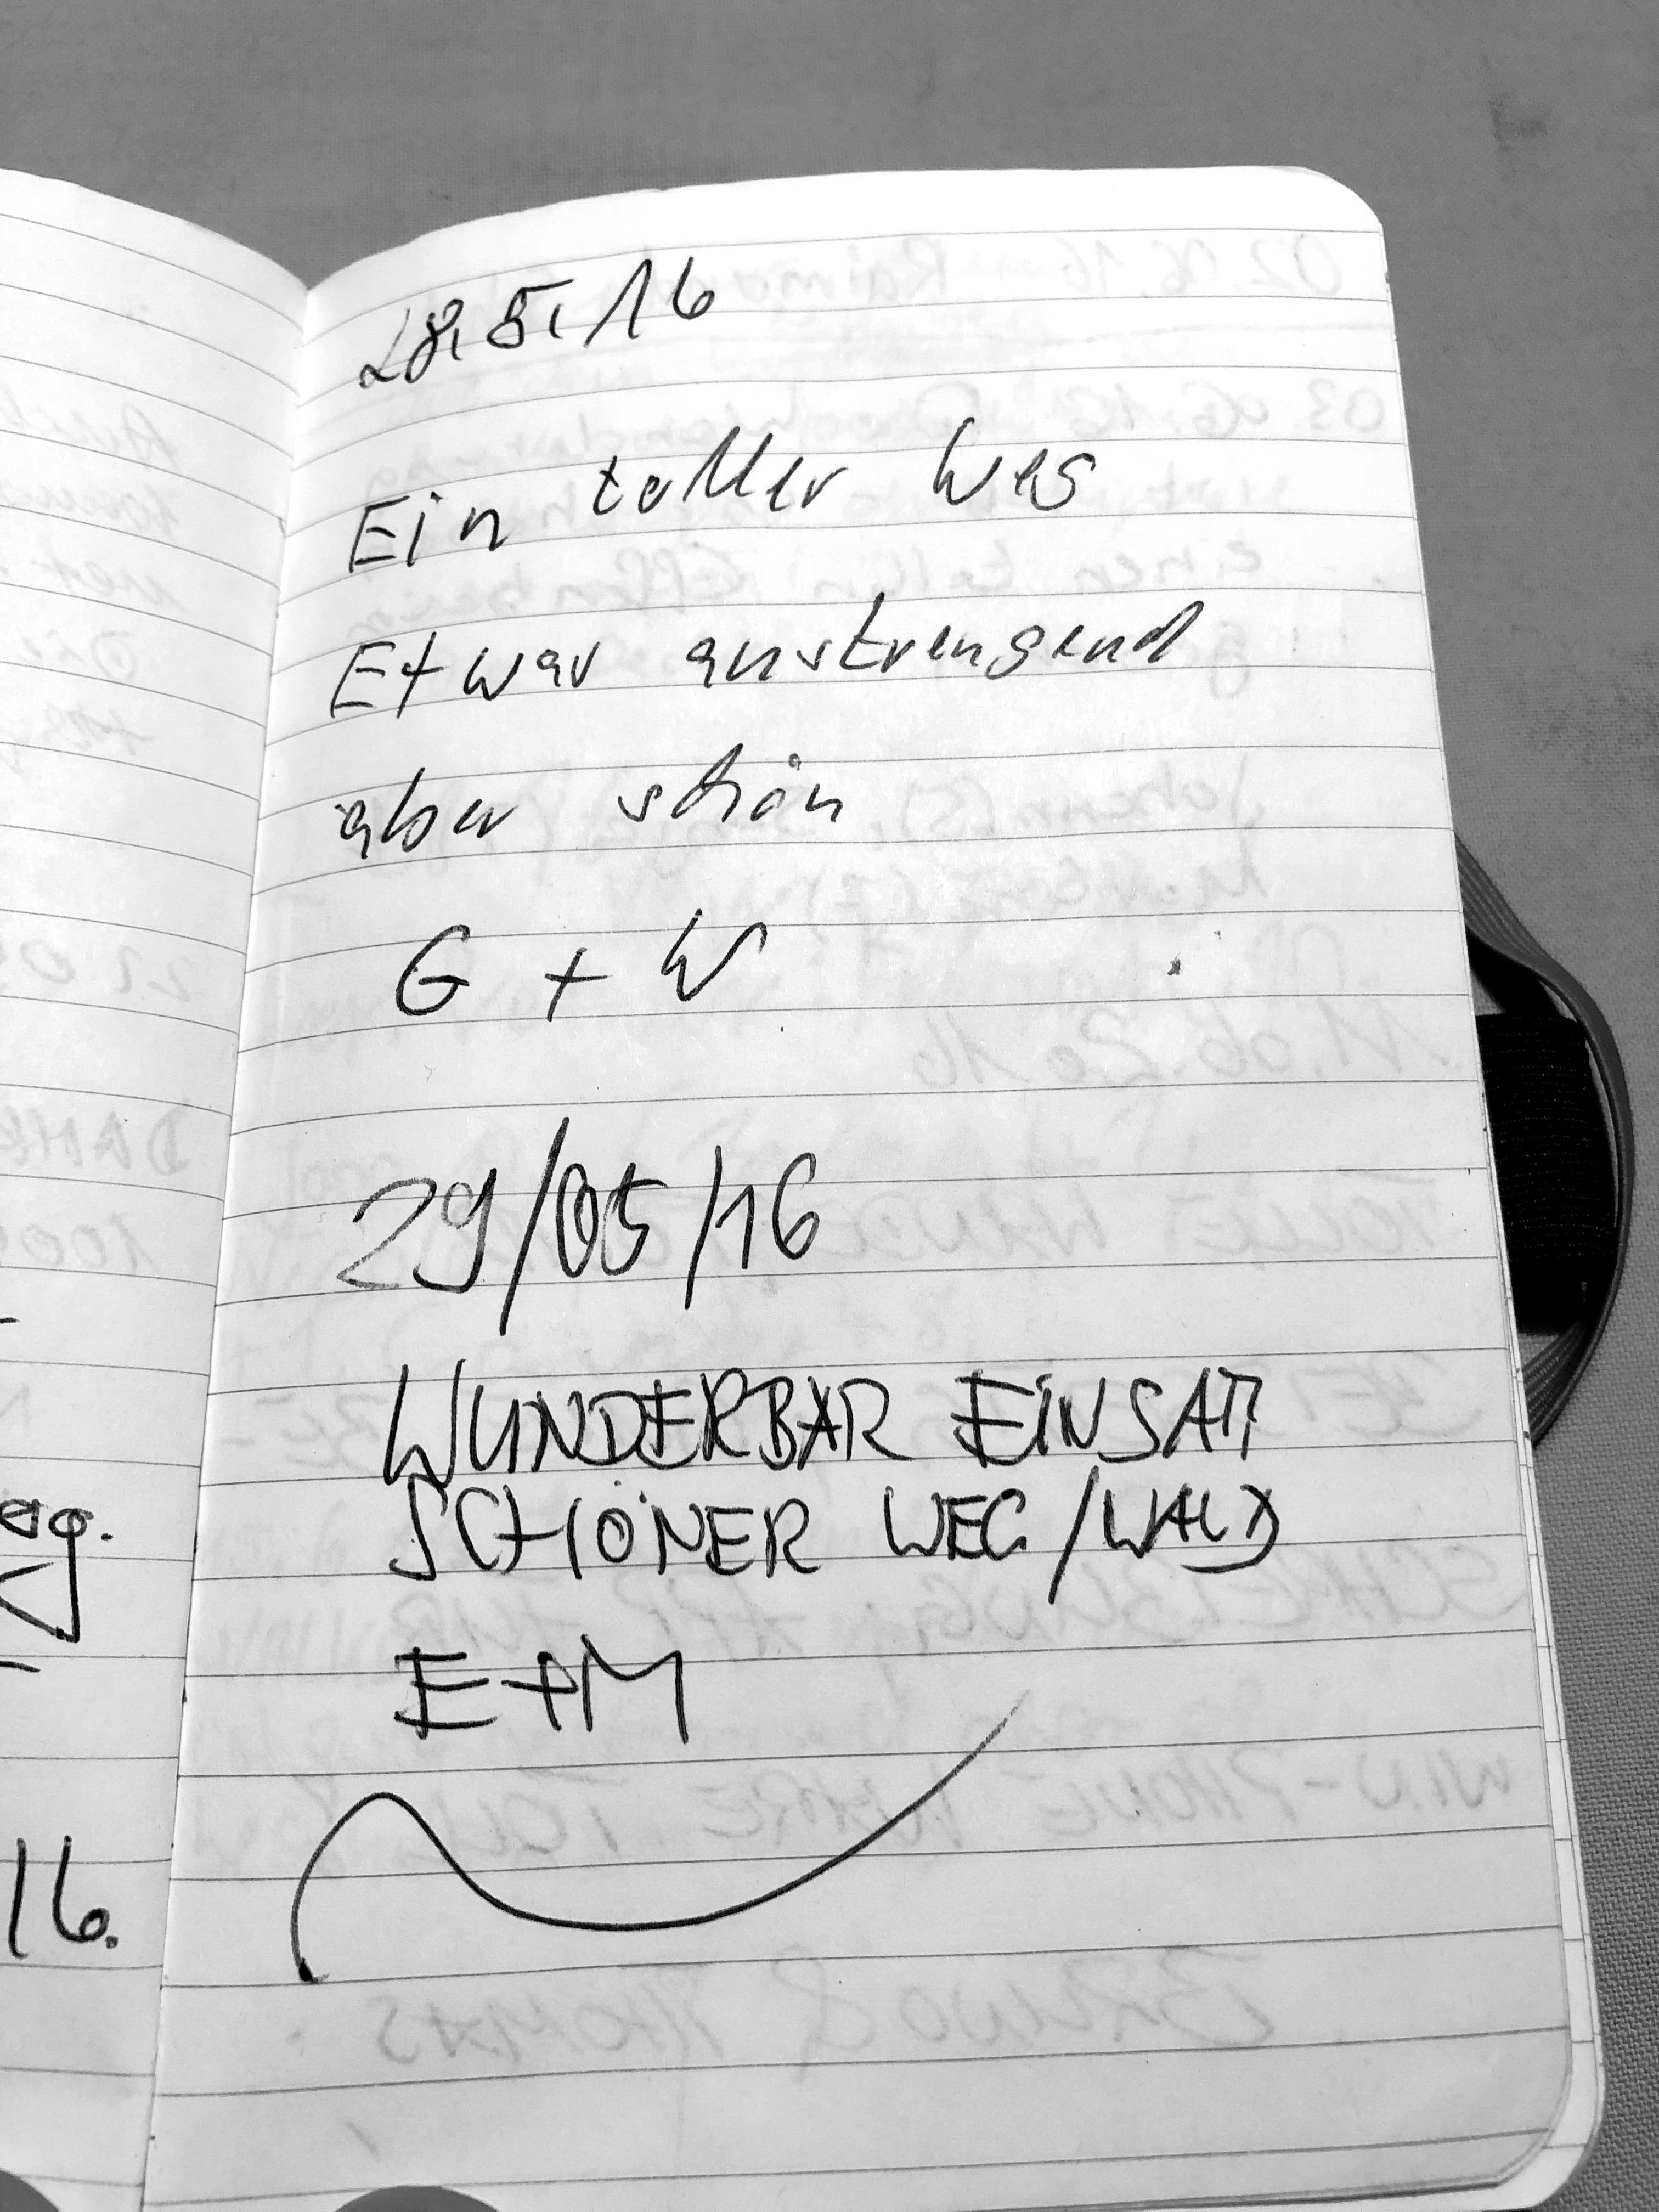 ag.
16.
28.5.16
Ein toller Weg
Etwas anstrengend
aber schön
G + W
29/05/16
WUNDERBAR EINSATZ
SCHÖNER WEG/WALD
E+M